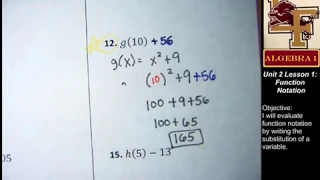 12. g(10) + 56
g(x) = x² + 9
(10)² + 9 + 56
100 + 9 + 56
100 + 65
165
15. h(5) − 13
05
ALGEBRA 1
Unit 2 Lesson 1:
Function
Notation
Objective:
I will evaluate
function notation
by writing the
substitution of a
variable.